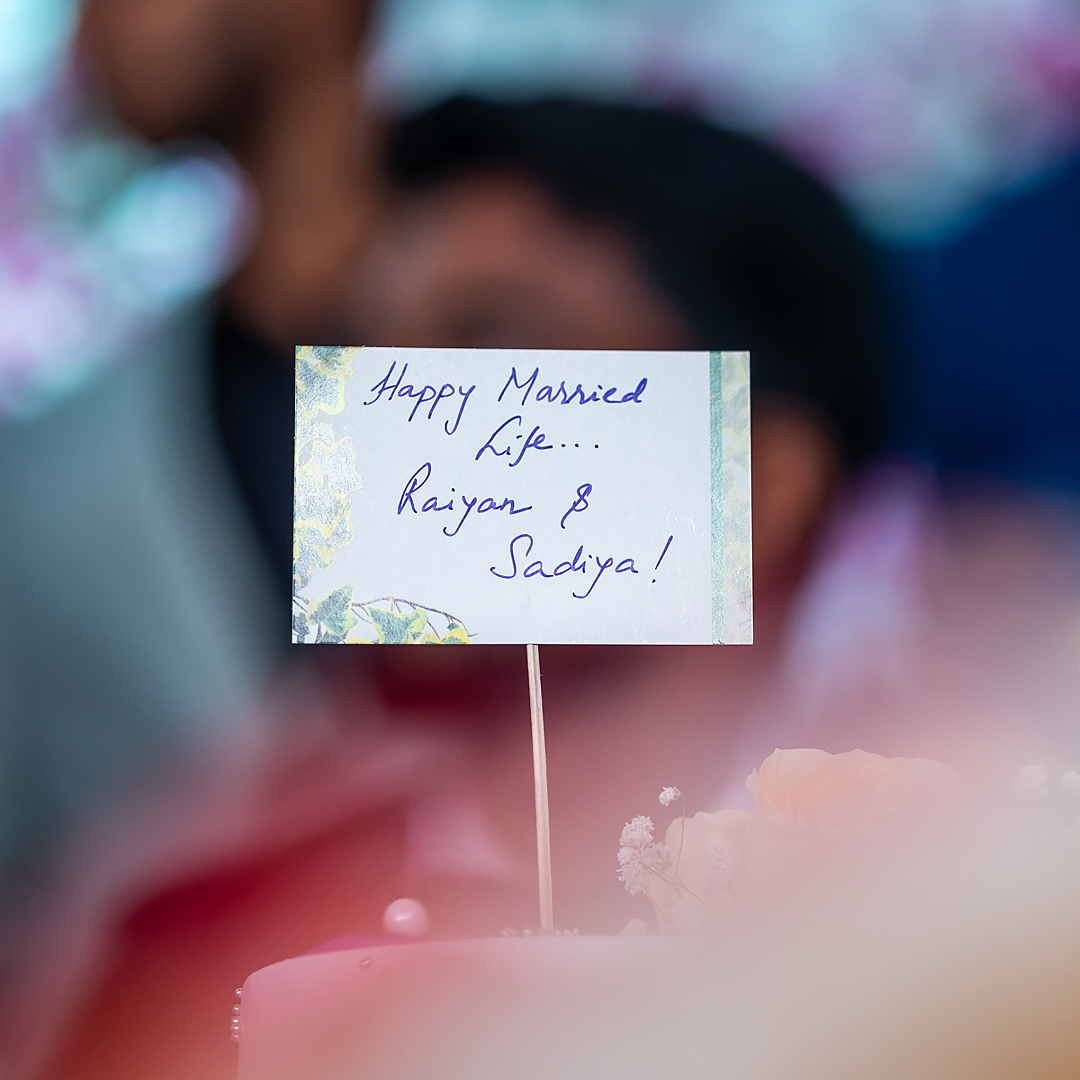 Happy Married
Life...
Raiyan &
Sadiya!